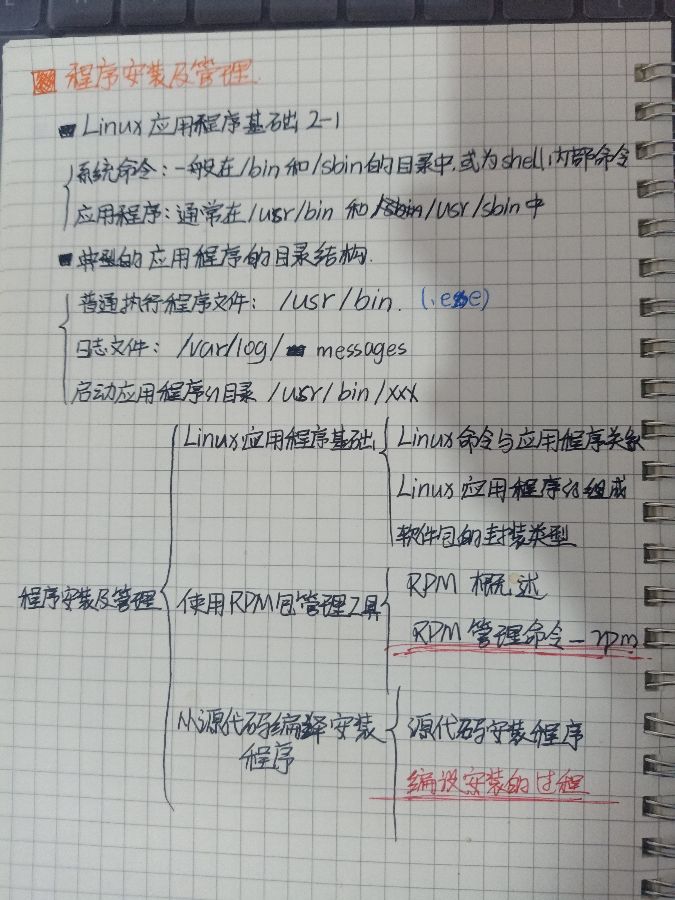 程序安装及管理.
Linux应用程序基础2-1
系统命令:一般在/bin和/sbin的目录中,或为shell内部命令
应用程序:通常在/usr/bin和/usr/sbin中
典型的应用程序的目录结构.
普通执行程序文件: /usr/bin. (.exe)
日志文件: /var/log/ messages
启动应用程序的目录 /usr/bin/xxx
Linux应用程序基础
Linux命令与应用程序关系
Linux应用程序的组成
软件包的封装类型
程序安装及管理
使用RPM包管理工具
RPM 概述
RPM 管理命令-rpm
从源代码编译安装
程序
源代码安装程序
编设安装的过程